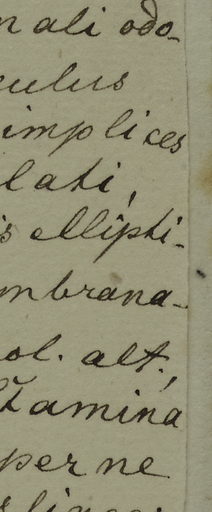 nali odo-
culus
implices
lati,
is ellipti-
mbrana-
ol. alt.,
Stamina
perne